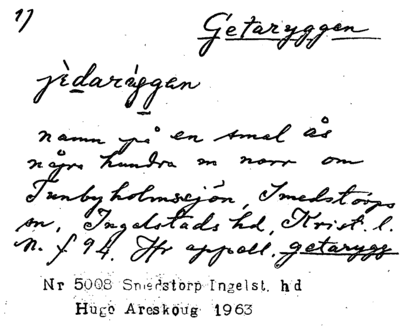 17
Getaryggen
jèdarýggan
namn på en smal ås
några hundra m norr om
Tunbyholmssjön, Smedstorps
sn, Ingelstads hd, Krist. l.
N. f 94. Jfr appell. getarygg
Nr 5008 Smedstorp Ingelst. hd
Hugo Areskoug 1963